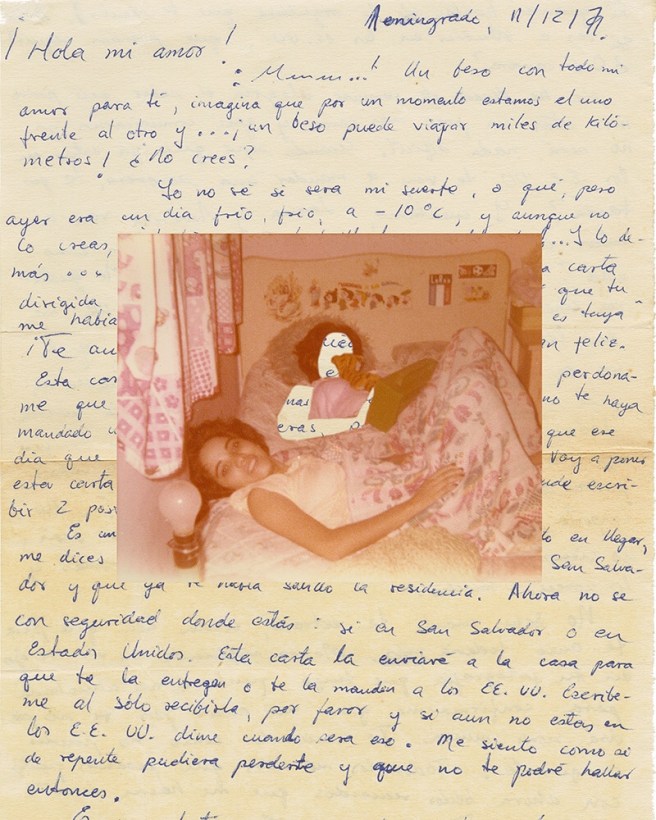 Leningrado, 11/12/77.
¡Hola mi amor!
¡Mmmm...! Un beso con todo mi
amor para tí, imagina que por un momento estamos el uno
frente al otro y ...¡un beso puede viajar miles de kiló-
metros! ¿No crees?
Yo no se si sera mi suerte, o qué, pero
ayer era un dia frio, frio, a -10°C, y aunque no
lo creas, ...Y lo de-
más ... a carta
dirigida que tu
me habia es tuya
¡Te an feliz.
uec
e
Esta car perdona-
me que no te haya
nas
mandado que ese
eras,
dia que Voy a poner
esta carta escri-
bir 2
Es un en llegar,
me dices San Salva-
dor y que ya te habia salido la residencia. Ahora no se
con seguridad donde estás: si en San Salvador o en
Estados Unidos. Esta carta la enviaré a la casa para
que te la entreguen o te la manden a los EE. UU. Escribe-
me al sólo recibirla, por favor y si aun no estas en
los E.E. UU. dime cuando sera eso. Me siento como si
de repente pudiera perderte y que no te podré hallar
entonces.